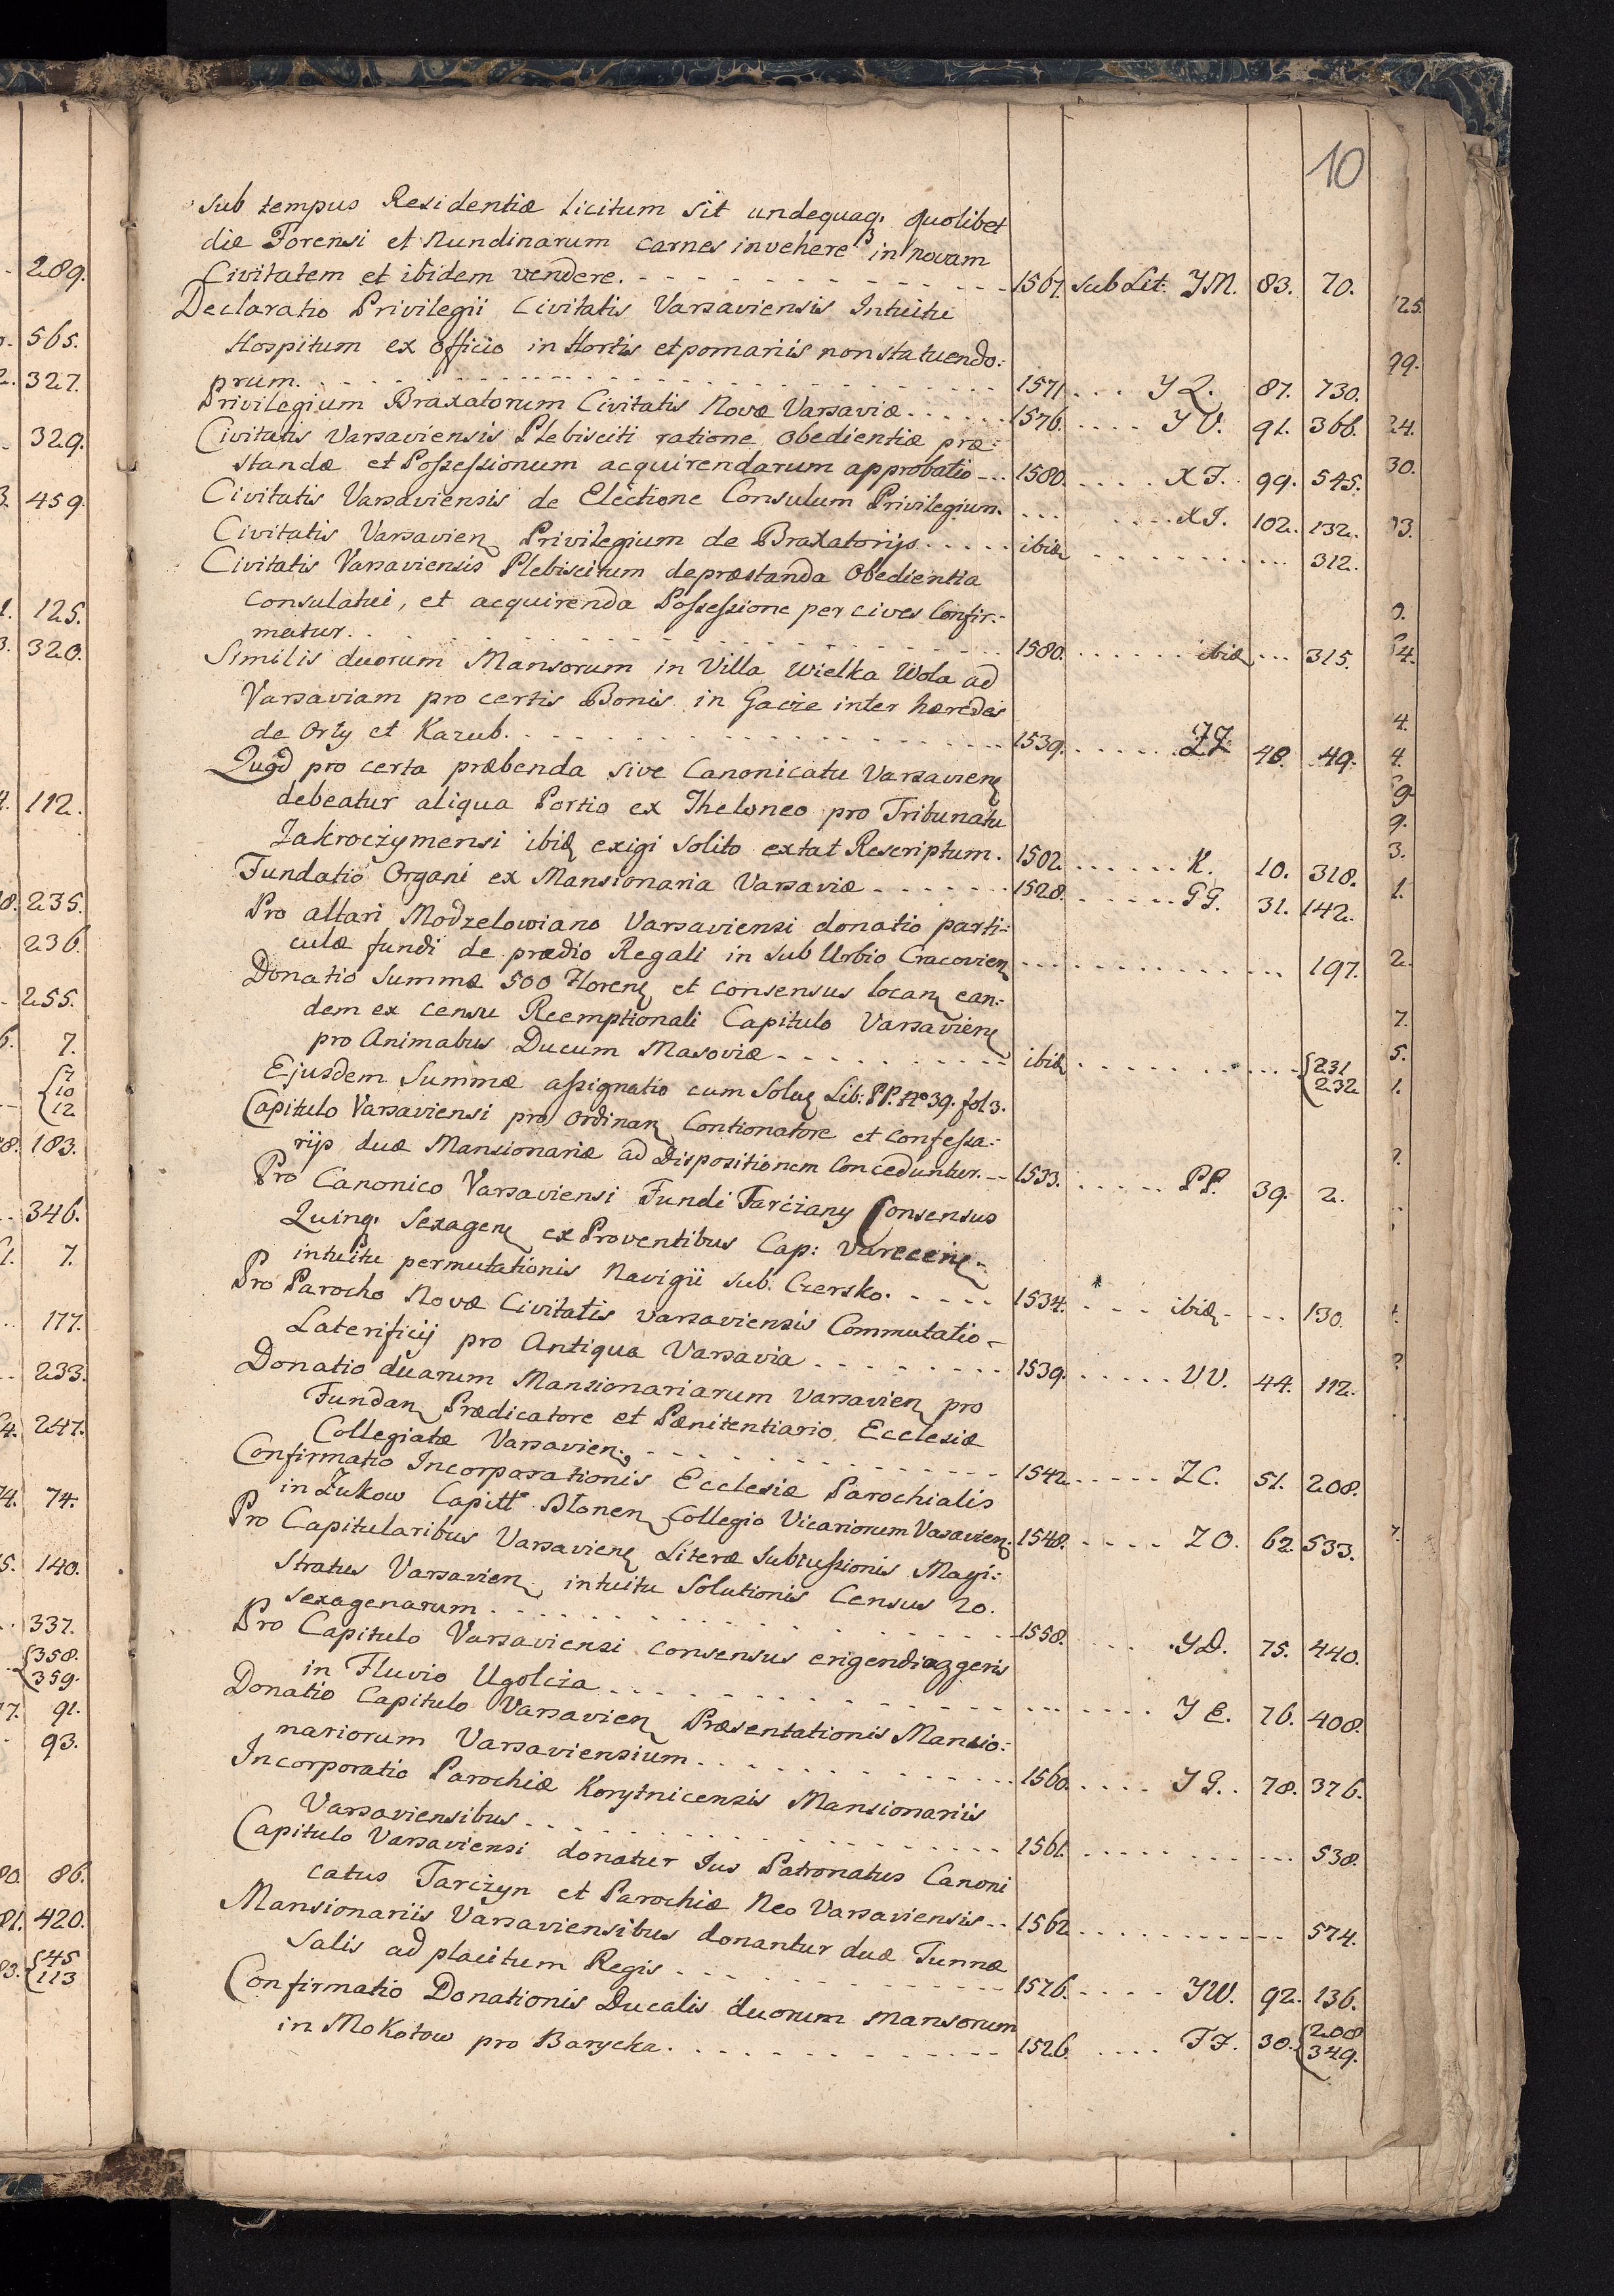 10
sub tempus Residentiæ licitum sit undequaq; quolibet
die Forensi et Nundinarum carnes invehere in novam
Civitatem et ibidem vendere. 1567. sub Lit. YM. 83. 70.
Declaratio Privilegii Civitatis Varsaviensis Intuitu
Hospitum ex officio in Hortis et pomariis non statuendo:
rum. 1571. YQ. 87. 730.
Privilegium Braxatorum Civitatis Novæ Varsaviæ 1576. YV. 91. 366.
Civitatis Varsaviensis Plebisciti ratione obedientiæ præ:
standæ et Possessionum acquirendarum approbatio 1580. XF. 99. 545.
Civitatis Varsaviensis de Electione Consulum Privilegium. XI. 102. 132.
Civitatis Varsavien Privilegium de Braxatorijs ibid 312.
Civitatis Varsaviensis Plebiscitum de præstanda Obedientia
Consulatui, et acquirenda Possessione per cives Confir:
matur. 1580. ibid 315.
Similis duorum Mansorum in Villa Wielka Wola ad
Varsaviam pro certis Bonis in Gacie inter hæredes
de Orty et Kazub. 1539. ZZ. 48. 49.
Quod pro certa præbenda sive Canonicatu Varsavien
debeatur aliqua Portio ex Theloneo pro Tribunatu
Zakroczymensi ibid exigi solito extat Rescriptum. 1502. K. 10. 318.
Fundatio Organi ex Mansionaria Varsaviæ 1528. GG. 31. 142.
Pro altari Modzelowiano Varsaviensi donatio parti:
culæ fundi de prædio Regali in sub Urbio Cracovien 197.
Donatio Summæ 500 Floren et consensus locan ean:
dem ex censu Reemptionali Capitulo Varsavien
pro Animabus Ducum Masoviæ ibid 231 232
Ejusdem Summæ assignatio cum Solu Lib: PP. No 39. fol 3.
Capitulo Varsaviensi pro Ordinan Contionatore et Confessa:
rijs duæ Mansionariæ ad Dispositionem Conceduntur. 1533. PP. 39. 2.
Pro Canonico Varsaviensi Fundi Tarciany Consensus
Quinq; Sexagen ex Proventibus Cap:
intuitu permutationis Navigii sub Czersko. 1534. ibid 130.
Pro Parocho Novæ Civitatis Varsaviensis Commutatio
Laterificij pro Antiqua Varsavia 1539. VV. 44. 112.
Donatio duarum Mansionariarum Varsavien pro
Fundan Prædicatore et Pænitentiario Ecclesiæ
Collegiatæ Varsavien. 1542. ZC. 51. 208.
Confirmatio Incorporationis Ecclesiæ Parochialis
in Zukow Capitlo Blonen Collegio Vicariorum Vasavien. 1548. ZO. 62. 533.
Pro Capitularibus Varsavien Literæ Submissionis Magi:
stratus Varsavien intuitu Solutionis Census 20.
sexagenarum 1558. YD. 75. 440.
Pro Capitulo Varsaviensi consensus erigendi aggeris
in Fluvio Ugolcia YE. 76. 408.
Donatio Capitulo Varsavien Præsentationis Mansio:
nariorum Varsaviensium 1560. YG. 78. 376.
Incorporatio Parochiæ Korytnicensis Mansionariis
Varsaviensibus 1561. 538.
Capitulo Varsaviensi donatur Ius Patronatus Canoni
catus Tarczyn et Parochiæ Neo Varsaviensis 1562 574.
Mansionariis Varsaviensibus donantur duæ Tunnæ
Salis ad placitum Regis 1576. YW. 92. 136.
Confirmatio Donationis Ducalis duorum mansorum
in Mokotow pro Barycka. 1526. FF. 30. 208 349.